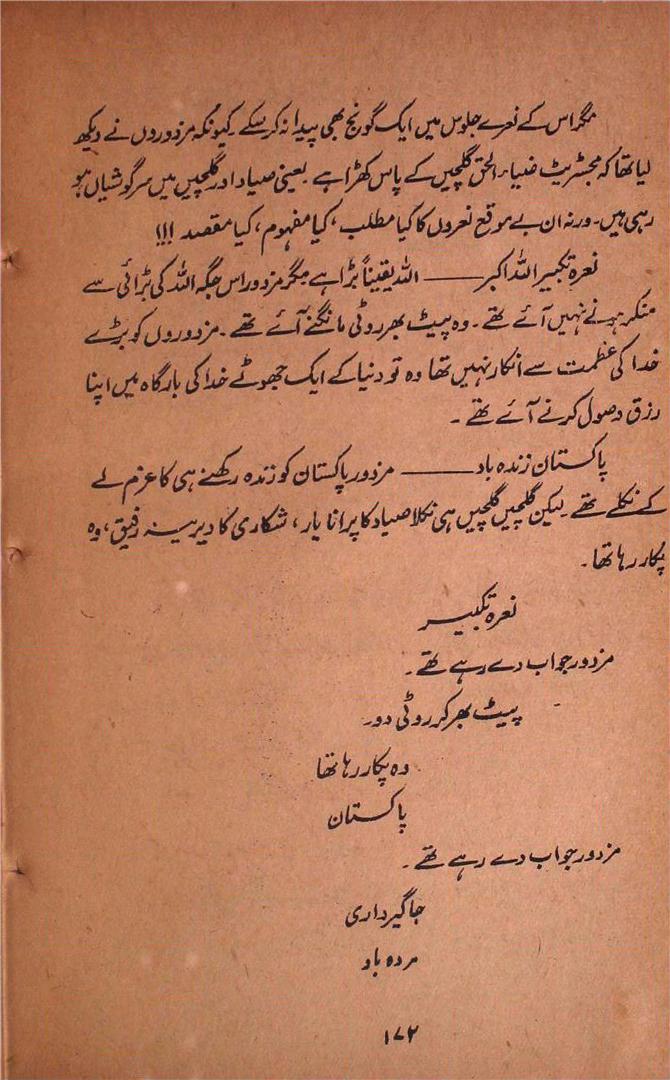 مگر اس کے نعرے جلوس میں ایک گونج بھی پیدا نہ کر سکے۔ کیونکہ مزدوروں نے دیکھ
لیا تھا کہ مجسٹریٹ ضیاء الحق گلچیں کے پاس کھڑا ہے یعنی صیاد اور گلچیں میں سرگوشیاں ہو
رہی ہیں۔ ورنہ ان بے موقع نعروں کا کیا مطلب، کیا مفہوم، کیا مقصد !!!
نعرہ تکبیر اللہ اکبر ——— اللہ یقیناً بڑا ہے مگر مزدور اس جگہ اللہ کی بڑائی سے
منکر ہونے نہیں آئے تھے۔ وہ پیٹ بھر روٹی مانگنے آئے تھے۔ مزدوروں کو بڑے
خدا کی عظمت سے انکار نہیں تھا وہ تو دنیا کے ایک جھوٹے خدا کی بارگاہ میں اپنا
رزق وصول کرنے آئے تھے ۔
پاکستان زندہ باد ——— مزدور پاکستان کو زندہ رکھنے ہی کا عزم لے
کے نکلے تھے لیکن گلچیں گلچیں ہی نکلا صیاد کا پرانا یار ، شکاری کا دیرینہ رفیق، وہ
پکار رہا تھا۔
نعرہ تکبیر
مزدور جواب دے رہے تھے ۔
پیٹ بھر کر روٹی دو۔
وہ پکار رہا تھا
پاکستان
مزدور جواب دے رہے تھے ۔
جاگیرداری
مردہ باد
۱۷۲